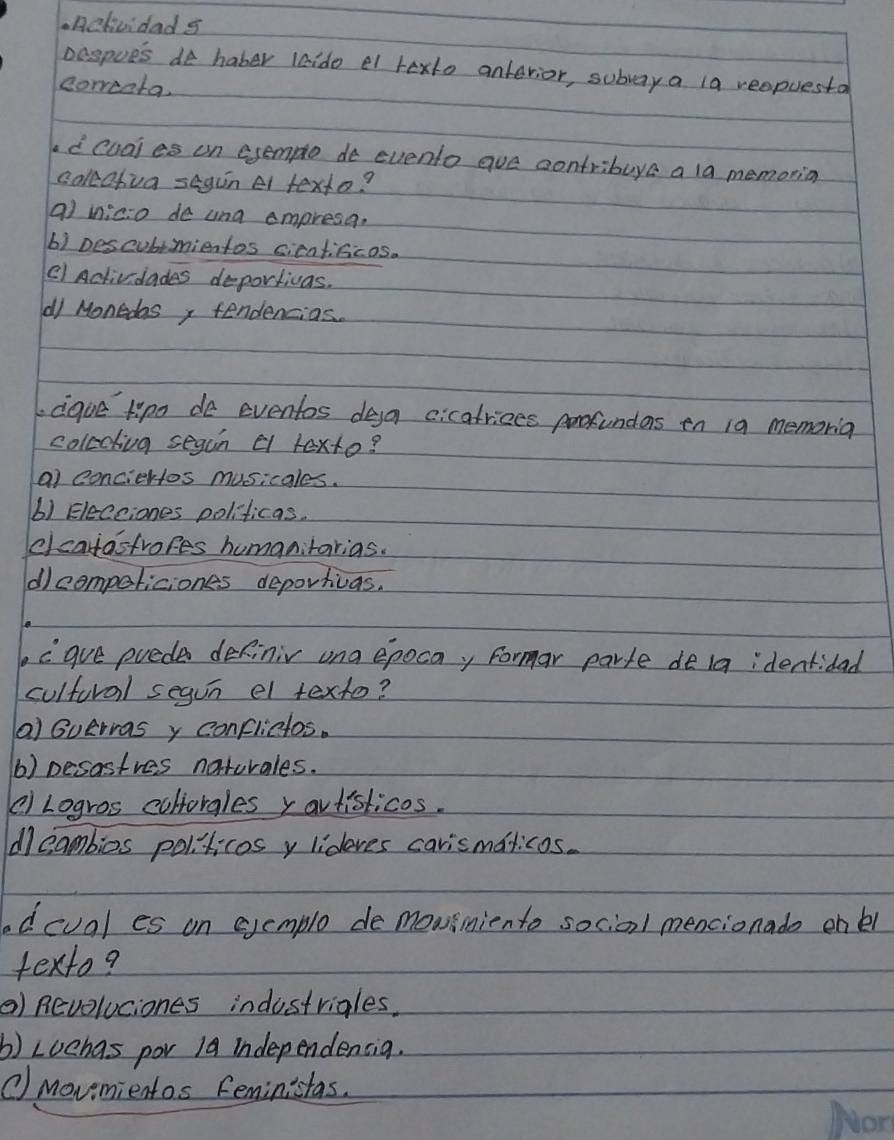 .Actividad 5
Después de haber leído el texto anterior, subraya la reopuesta
correcta.
.¿ Cuál es un ejemplo de evento que contribuye a la memoria
colectiva según el texto?
a) inicio de una empresa.
b) Descubrimientos científicos.
c) Actividades deportivas.
d) Monedas y tendencias.
.¿que tipo de eventos deja cicatrices profundas en la memoria
colectiva según el texto?
a) conciertos musicales.
b) Elecciones políticas.
c) catástrofes humanitarias.
d) competiciones deportivas.
.
.¿que puede definir una época y formar parte de la identidad
cultural según el texto?
a) Guerras y conflictos.
b) Desastres naturales.
c) Logros culturales y artísticos.
d) cambios políticos y lideres carismáticos.
.¿cual es un ejemplo de movimiento social mencionado en el
texto?
a) Revoluciones industriales.
b) Luchas por la independencia.
c) Movimientos feministas.
Nor